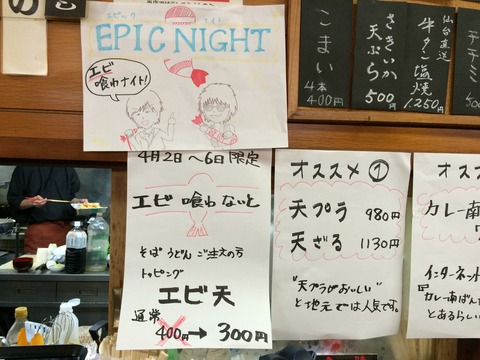 の
エピック ナイト
EPIC NIGHT
エビ
喰わナイト!
こまい
4本
400円
さきいか
天ぷら
500円
仙台直送
牛タン塩焼
1,250円
チヂミ
4月2日～6日限定
エビ 喰わ ないと
そば うどん ご注文の方
トッピング
エビ天
通常
400円→300円
オススメ①
天プラ 980円
天ざる 1130円
"天プラがおいしい"
と地元では人気です。
オス
カレー南
インターネット
カレー南ばん
とあるらしい